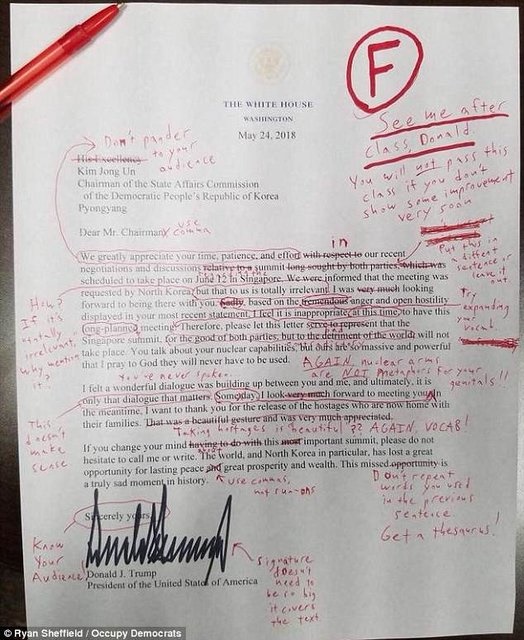 F
See me after
class, Donald.
You will not pass this
class if you don't
show some improvement
very soon
THE WHITE HOUSE
WASHINGTON
May 24, 2018
Don't pander
to your
audience
His Excellency
Kim Jong Un
Chairman of the State Affairs Commission
of the Democratic People's Republic of Korea
Pyongyang
Dear Mr. Chairman,
use
comma
in
We greatly appreciate your time, patience, and effort with respect to our recent
negotiations and discussions relative to a summit long sought by both parties, which was
scheduled to take place on June 12 in Singapore. We were informed that the meeting was
requested by North Korea, but that to us is totally irrelevant. I was very much looking
forward to being there with you. Sadly, based on the tremendous anger and open hostility
displayed in your most recent statement, I feel it is inappropriate, at this time, to have this
long-planned meeting. Therefore, please let this letter serve to represent that the
Singapore summit, for the good of both parties, but to the detriment of the world, will not
take place. You talk about your nuclear capabilities, but ours are so massive and powerful
that I pray to God they will never have to be used.
Put this in
different
sentence or
leave it out
Try
expanding
your
vocab
How?
If it's
totally
irrelevant,
why mention
it...
AGAIN, nuclear arms
are NOT metaphors for your
genitals!!
You've never spoken
I felt a wonderful dialogue was building up between you and me, and ultimately, it is
only that dialogue that matters. Some day, I look very much forward to meeting you. In
the meantime, I want to thank you for the release of the hostages who are now home with
their families. That was a beautiful gesture and was very much appreciated.
This
doesn't
make
sense
Taking hostages is beautiful?? AGAIN, VOCAB!
If you change your mind having to do with this most important summit, please do not
about
hesitate to call me or write. The world, and North Korea in particular, has lost a great
opportunity for lasting peace and great prosperity and wealth. This missed opportunity is
a truly sad moment in history.
use commas,
not run-ons
Don't repeat
words you used
in the previous
sentence.
Get a thesaurus!
Sincerely yours,
Know
Your
Audience
Donald J. Trump
President of the United States of America
Signature
doesn't
need to
be so big
it covers
the text
© Ryan Sheffield / Occupy Democrats